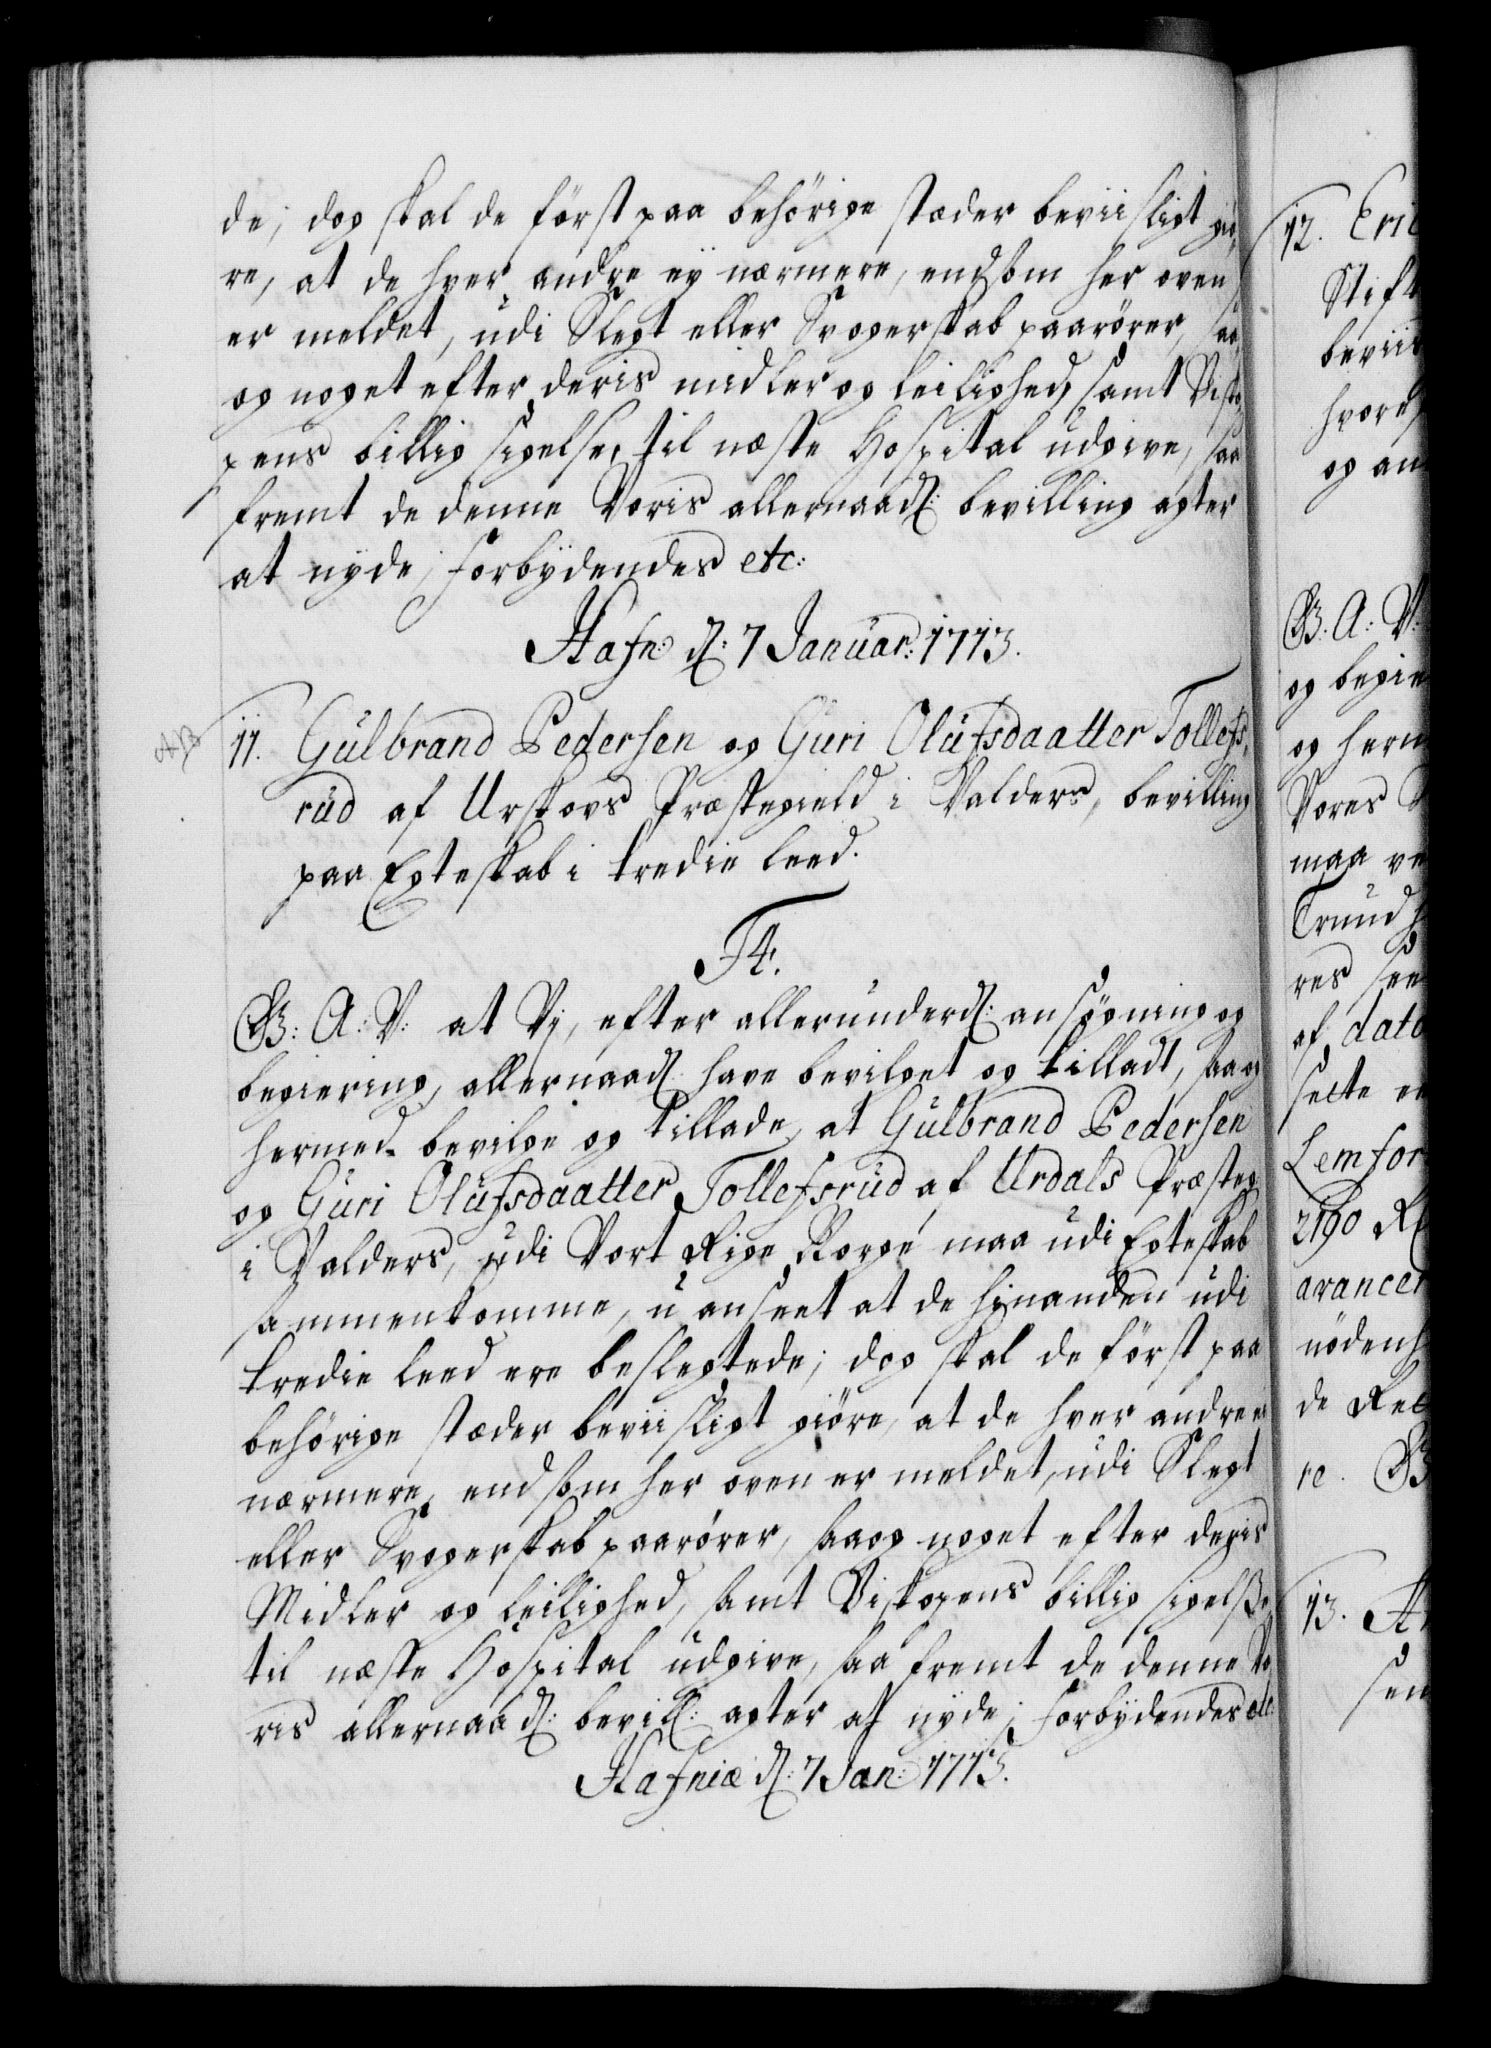 de; dog skal de först paa behörige stæder beviisligt giö,
re, at de hver andre eÿ nærmere, end som her oven
er meldet, udi Slegt eller Svogerskab paarörer, saa
og noget efter deris midler og leilighed, samt Bisko,
pens billig sigelse, til næste Hospital udgive, saa
fremt de denne Voris allernaad: bevilling agter
at nÿde; forbÿdendes etc:
Hafn: d: 7 Januar: 1713.
11. Gulbrand Pedersen og Guri Olufsdaatter Tollefs,
rud af Urskovs Præstegield i Valders, bevilling
paa Egteskab i tredie leed.
F4.
G: A: V: at Vj, efter allerunderd: ansögning og
begiering, allernaad: have bevilget og tilladt, saa og
hermed bevilge og tillade, at Gulbrand Pedersen
og Guri Olufsdaatter Tollefsrud af Urdals Præsteg:
i Valders, udi Vort Rige Norge maa udi Egteskab
sammenkomme, uanseet at de hinanden udi
tredie leed ere beslegtede; dog skal de först paa
behörige stæder beviisligt giöre, at de hver andre ei
nærmere, end som her oven er meldet, udi Slegt
eller Svogerskab paarörer, saa og noget efter deris
Midler og leilighed, samt Biskopens billig sigelse,
til næste Hospital udgive, saa fremt de denne Vo
ris allernaad: bevill: agter at nÿde; forbÿdendes etc:
Hafniæ d: 7 Jan: 1713.
12. Eric
Stift
beviis
hvor
og an
G: A: V:
og begie
og herm
Vores
maa ve
Trund h
res see
af dato
sette en
Lemfor
2190 R
avancer
nödenh
de Rec
re. G
13. A
sen